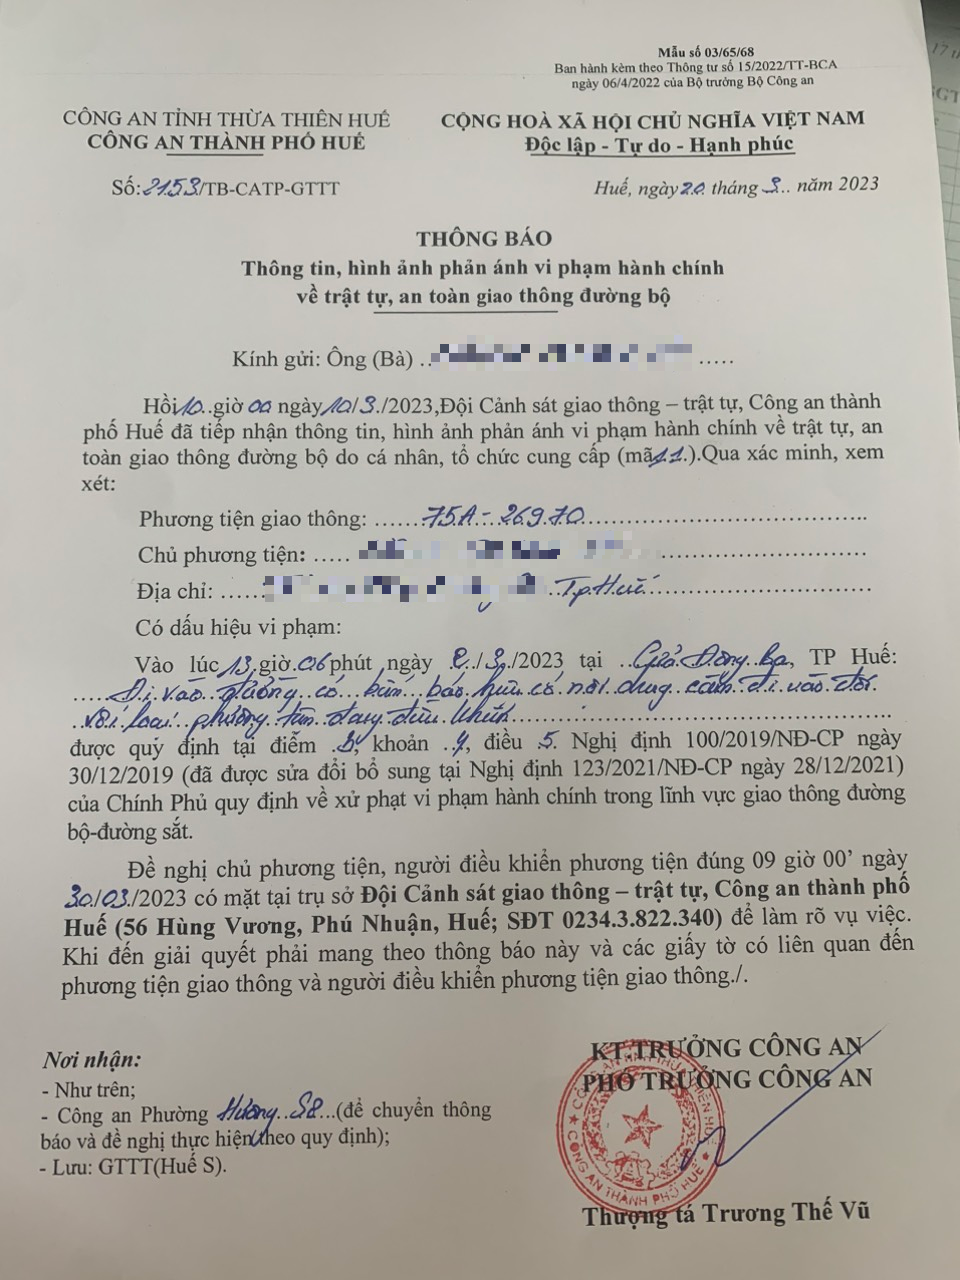 Mẫu số 03/65/68
Ban hành kèm theo Thông tư số 15/2022/TT-BCA
ngày 06/4/2022 của Bộ trưởng Bộ Công an
CÔNG AN TỈNH THỪA THIÊN HUẾ
CÔNG AN THÀNH PHỐ HUẾ
CỘNG HOÀ XÃ HỘI CHỦ NGHĨA VIỆT NAM
Độc lập - Tự do - Hạnh phúc
Số: 2153/TB-CATP-GTTT
Huế, ngày 20 tháng 3.. năm 2023
THÔNG BÁO
Thông tin, hình ảnh phản ánh vi phạm hành chính
về trật tự, an toàn giao thông đường bộ
Kính gửi: Ông (Bà) .. .....
Hồi 10..giờ 00 ngày 10/3./2023,Đội Cảnh sát giao thông – trật tự, Công an thành
phố Huế đã tiếp nhận thông tin, hình ảnh phản ánh vi phạm hành chính về trật tự, an
toàn giao thông đường bộ do cá nhân, tổ chức cung cấp (mã 11.).Qua xác minh, xem
xét:
Phương tiện giao thông: ......75A - 269.70..............................
Chủ phương tiện: ..... ..............................
Địa chỉ: ...... ..Tp.Huế..............................
Có dấu hiệu vi phạm:
Vào lúc 13 giờ 06 phút, ngày 2../3./2023 tại ..Cửa Đông Ba, TP Huế:
.....Đi vào đường có biển báo hiệu có nội dung cấm đi vào đối
với loại phương tiện đang điều khiển..............................
được quy định tại điểm .b, khoản .4, điều 5. Nghị định 100/2019/NĐ-CP ngày
30/12/2019 (đã được sửa đổi bổ sung tại Nghị định 123/2021/NĐ-CP ngày 28/12/2021)
của Chính Phủ quy định về xử phạt vi phạm hành chính trong lĩnh vực giao thông đường
bộ-đường sắt.
Đề nghị chủ phương tiện, người điều khiển phương tiện đúng 09 giờ 00’ ngày
30/03./2023 có mặt tại trụ sở Đội Cảnh sát giao thông – trật tự, Công an thành phố
Huế (56 Hùng Vương, Phú Nhuận, Huế; SĐT 0234.3.822.340) để làm rõ vụ việc.
Khi đến giải quyết phải mang theo thông báo này và các giấy tờ có liên quan đến
phương tiện giao thông và người điều khiển phương tiện giao thông./.
Nơi nhận:
- Như trên;
- Công an Phường Hương Sơ...(để chuyển thông
báo và đề nghị thực hiện theo quy định);
- Lưu: GTTT(Huế S).
KT.TRƯỞNG CÔNG AN
PHÓ TRƯỞNG CÔNG AN
CÔNG AN TỈNH THỪA THIÊN HUẾ
CÔNG AN THÀNH PHỐ HUẾ
Thượng tá Trương Thế Vũ